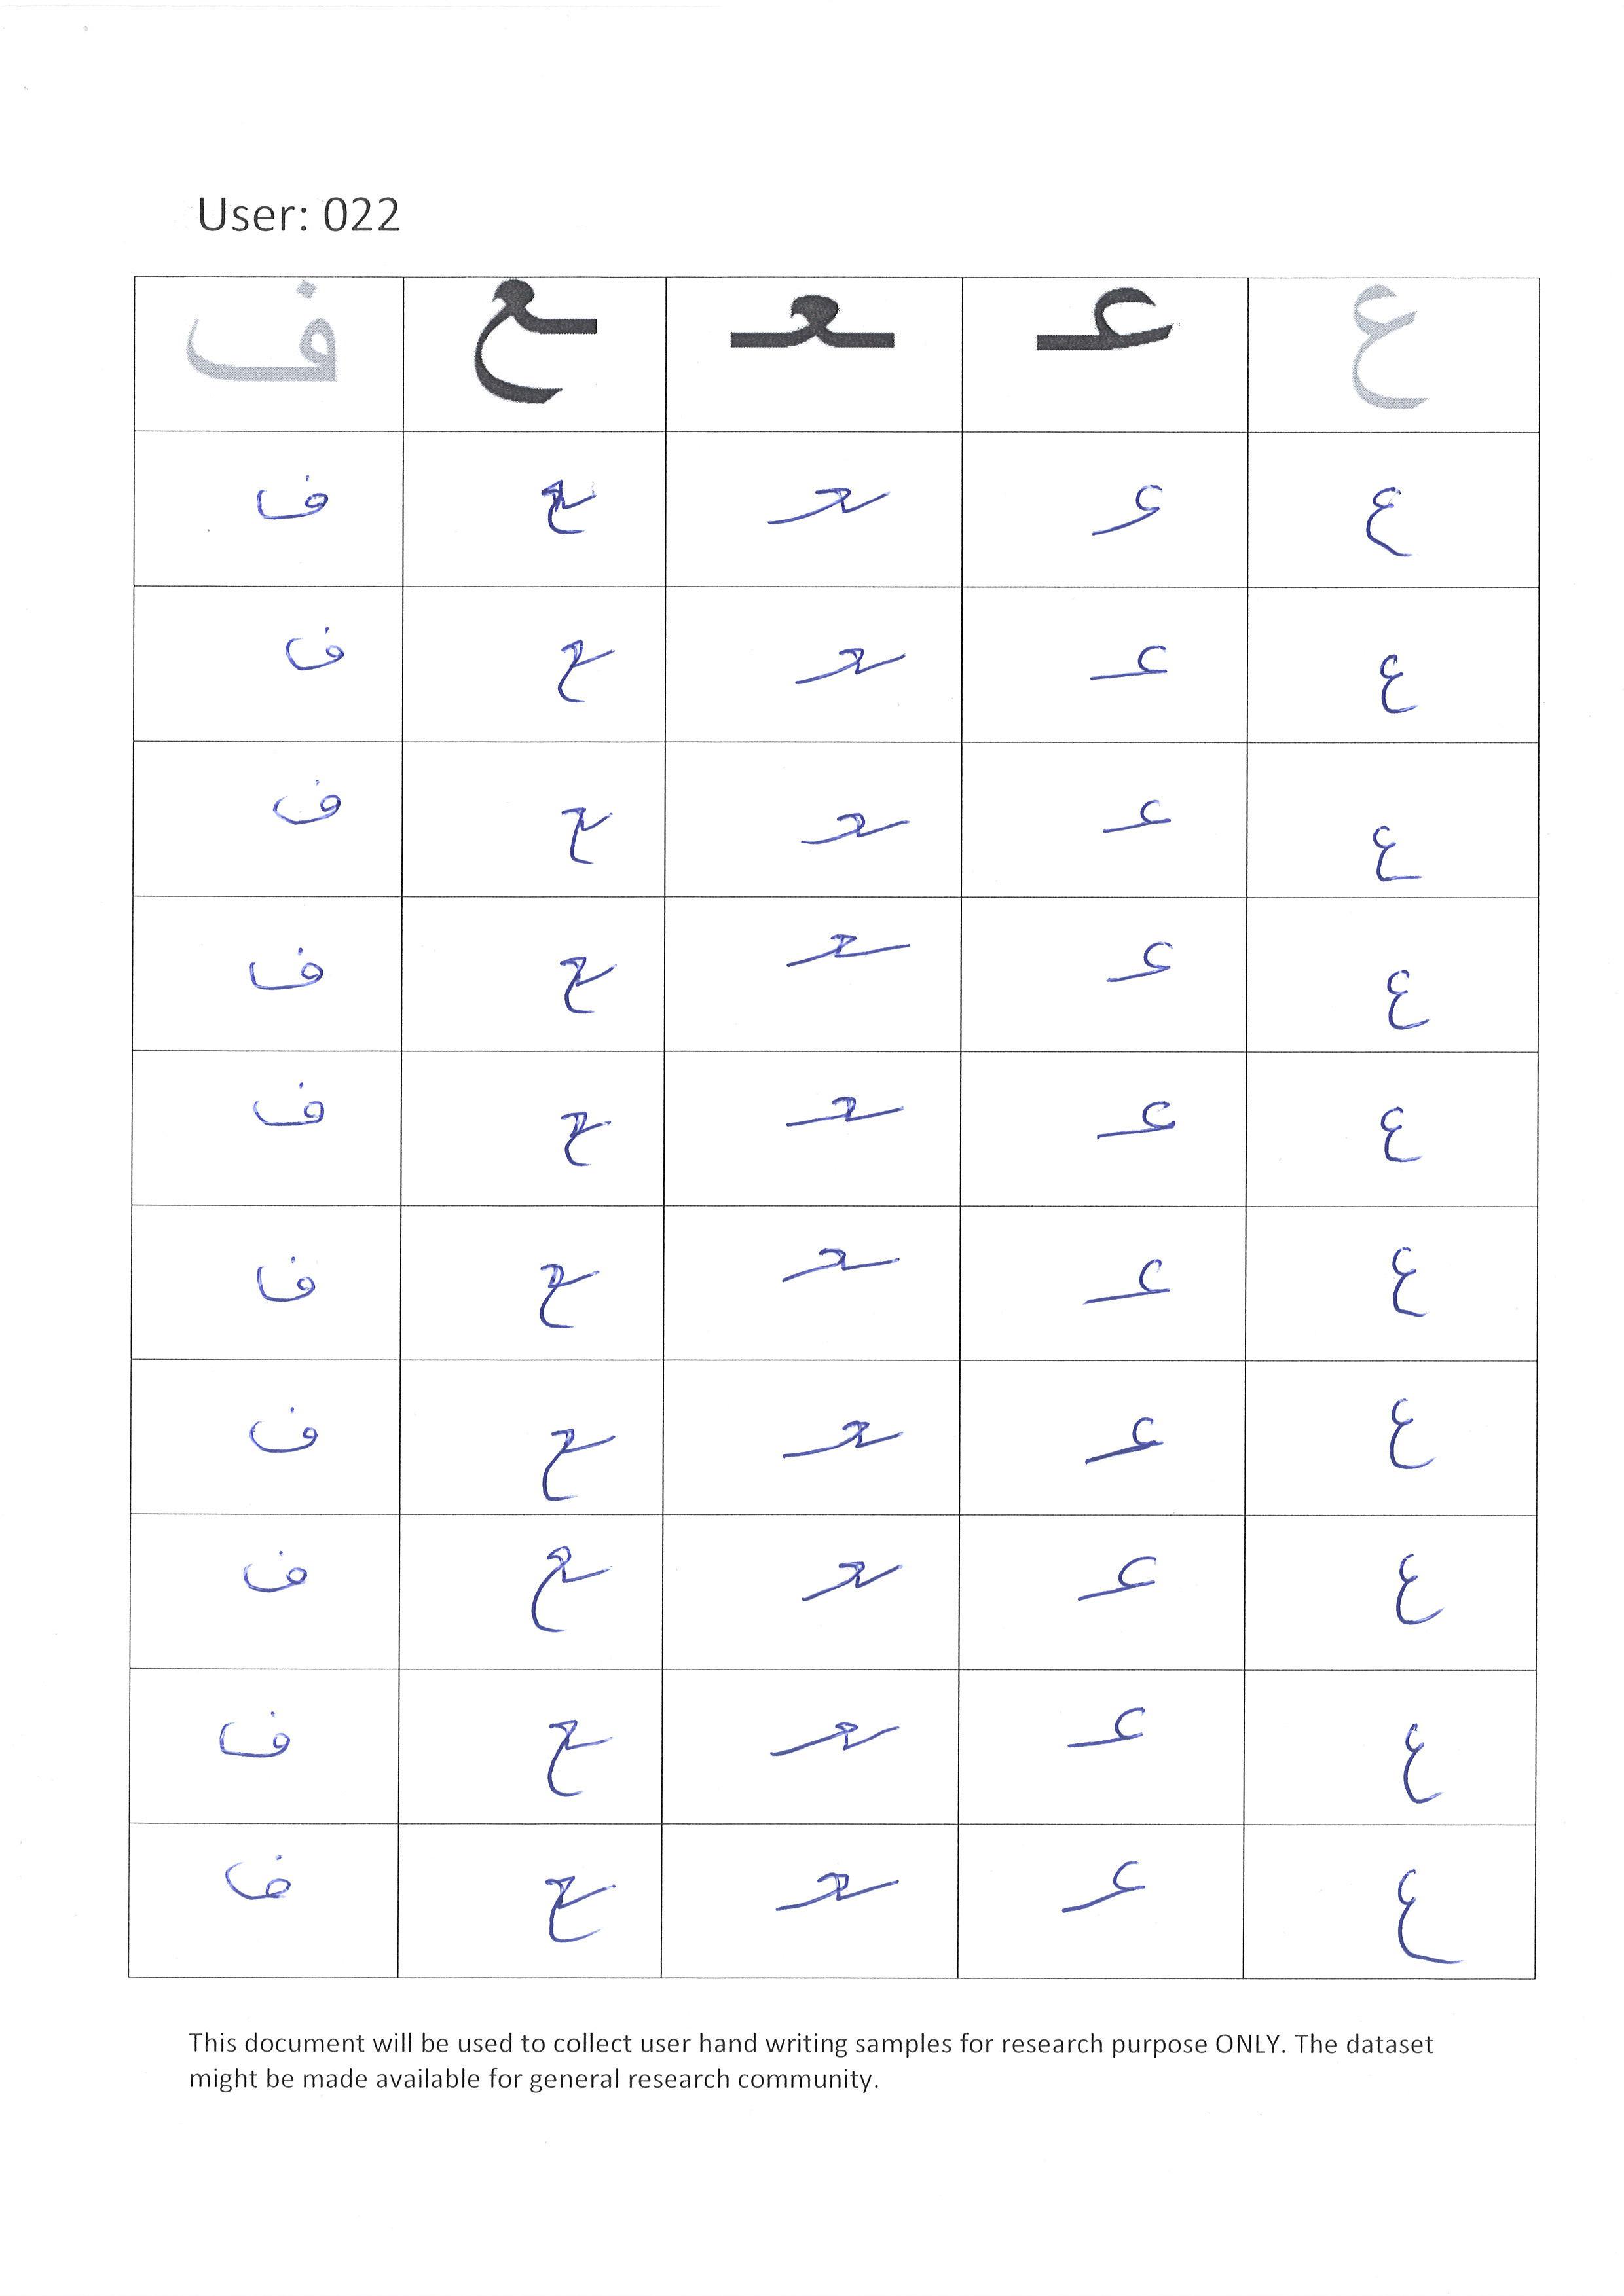 User: 022
ع عـ ـعـ ـع ف
ع عـ ـعـ ـع ف
ع عـ ـعـ ـع ف
ع عـ ـعـ ـع ف
ع عـ ـعـ ـع ف
ع عـ ـعـ ـع ف
ع عـ ـعـ ـع ف
ع عـ ـعـ ـع ف
ع عـ ـعـ ـع ف
ع عـ ـعـ ـع ف
ع عـ ـعـ ـع ف
This document will be used to collect user hand writing samples for research purpose ONLY. The dataset
might be made available for general research community.